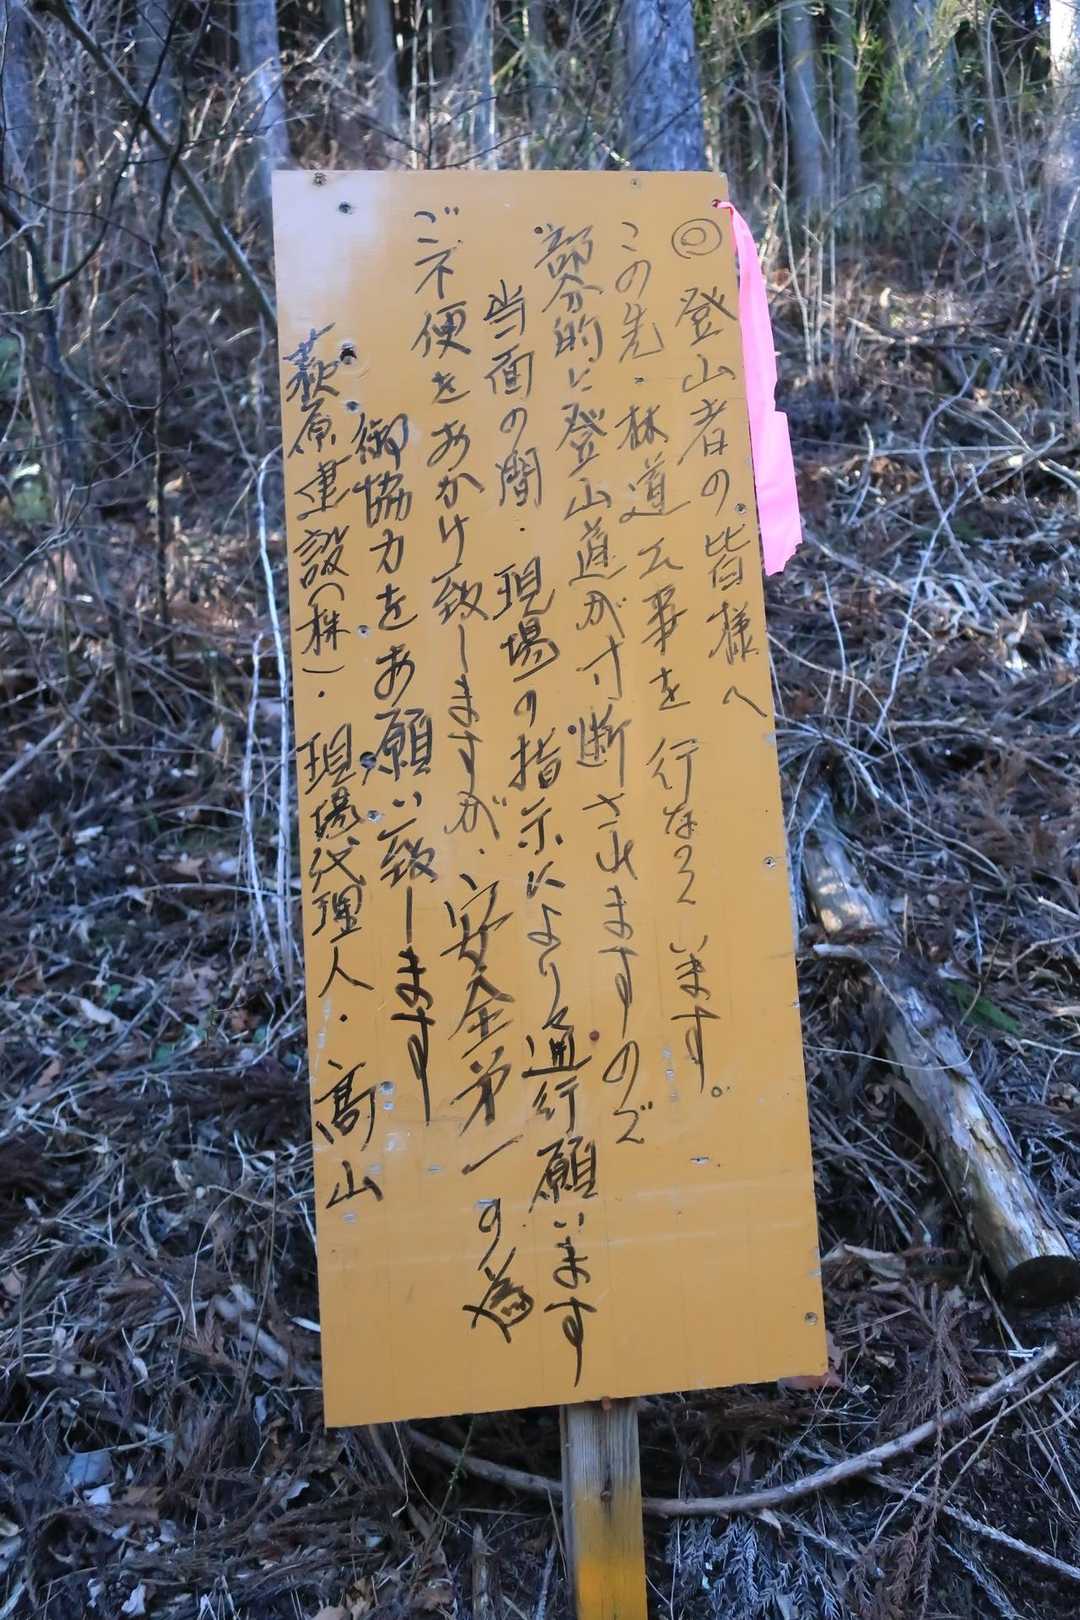 ◎ 登山者の皆様へ
この先・林道工事を行なっています。
部分的に登山道が寸断されますので
当面の間・現場の指示により通行願います
ご不便をあかけ致しますが、安全第一の為
御協力をお願い致します
萩原建設(株)・現場代理人・髙山